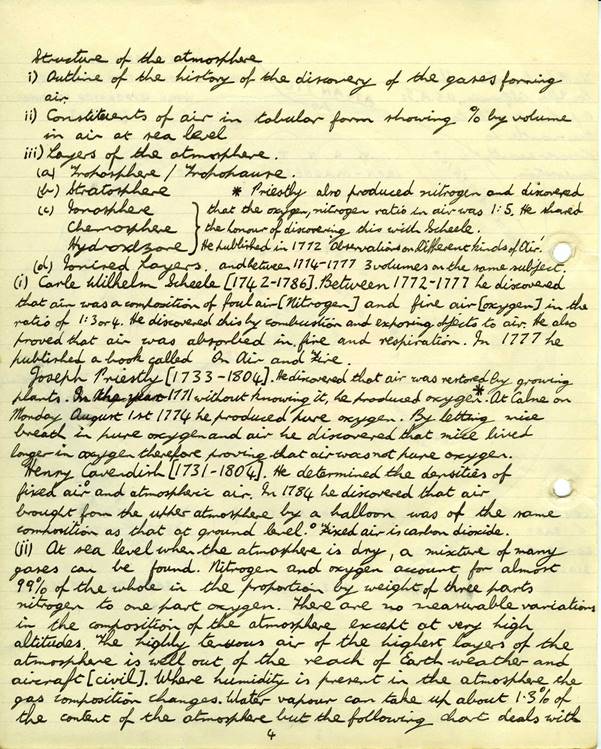 Structure of the atmosphere
i) Outline of the history of the discovery of the gases forming
air.
ii) Constituents of air in tabular form showing % by volume
in air at sea level
iii) Layers of the atmosphere.
(a) Troposphere / Tropopause.
(b) Stratosphere * Priestly also produced nitrogen and discovered
(c) Ionosphere that the oxygen, nitrogen ratio in air was 1:5. He shared
Chemosphere the honour of discovering this with Scheele.
He published in 1772 'Observations on Different kinds of Air'.
(d) Ionised Layers. and between 1774-1777 3 volumes on the same subject.
(i) Carle Wilhelm Scheele [1742-1786]. Between 1772-1777 he discovered
that air was a composition of foul air [Nitrogen] and fire air [oxygen] in the
ratio of 1:3 or 4. He discovered this by combustion and exposing objects to air. He also
proved that air was absorbed in fire and respiration. In 1777 he
published a book called On Air and Fire.
Joseph Priestly [1733-1804]. He discovered that air was restored by growing
plants. In the year 1771 without knowing it, he produced oxygen.* At Calne on
Monday August 1st 1774 he produced pure oxygen. By letting mice
breath in pure oxygen and air he discovered that mice lived
longer in oxygen therefore proving that air was not pure oxygen.
Henry Cavendish [1731-1804]. He determined the densities of
fixed air° and atmospheric air. In 1784 he discovered that air
brought from the upper atmosphere by a balloon was of the same
composition as that at ground level. ° Fixed air is carbon dioxide.
(ii) At sea level when the atmosphere is dry, a mixture of many
gases can be found. Nitrogen and oxygen account for almost
99% of the whole in the proportion by weight of three parts
nitrogen to one part oxygen. There are no measurable variations
in the composition of the atmosphere except at very high
altitudes. The highly tenuous air of the highest layers of the
atmosphere is well out of the reach of Earth weather and
aircraft [civil]. Where humidity is present in the atmosphere the
gas composition changes. Water vapour can take up about 1·3% of
the content of the atmosphere but the following chart deals with
4